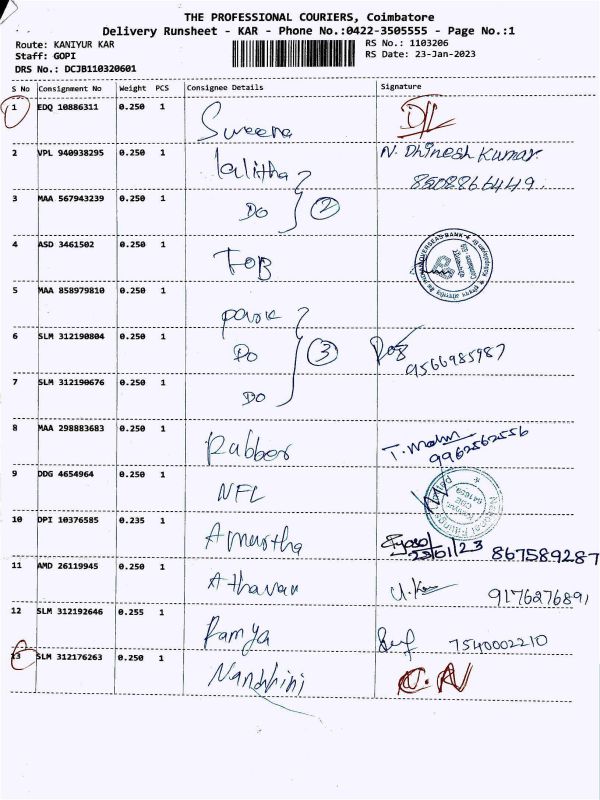 THE PROFESSIONAL COURIERS, Coimbatore
Delivery Runsheet - KAR - Phone No.:0422-3505555 - Page No.:1
Route: KANIYUR KAR
RS No.: 1103206
Staff: GOPI
RS Date: 23-Jan-2023
DRS No.: DCJB110320601
S No Consignment No Weight PCS Consignee Details Signature
1 EDQ 10886311 0.250 1 Sweena
2 VPL 940938295 0.250 1 lalitha N. Dhinesh Kumar
8508866449.
3 MAA 567943239 0.250 1 Do 2
4 ASD 3461502 0.250 1 FOB
5 MAA 858979810 0.250 1 park
6 SLM 312190804 0.250 1 Do 3 9566985987
7 SLM 312190676 0.250 1 Do
8 MAA 298883683 0.250 1 Rubber T. Mohn 9962562556
9 DDG 4654964 0.250 1 NFL
10 DPI 10376585 0.235 1 Amurtha 23/01/23 867589287
11 AMD 26119945 0.250 1 Athavan 9176276891
12 SLM 312192646 0.255 1 Ramya 7540002210
13 SLM 312176263 0.250 1 Nandhini C.N